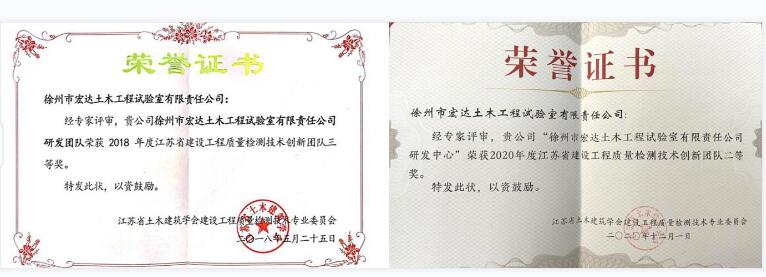 荣誉证书
徐州市宏达土木工程试验室有限责任公司：
经专家评审，贵公司徐州市宏达土木工程试验室有限责任公司
研发团队荣获 2018 年度江苏省建设工程质量检测技术创新团队三
等奖。
特发此状，以资鼓励。
江苏省土木建筑学会建设工程质量检测技术专业委员会
二〇一八年五月二十五日
荣誉证书
徐州市宏达土木工程试验室有限责任公司：
经专家评审，贵公司“徐州市宏达土木工程试验室有限责任公司
研发中心”荣获2020年度江苏省建设工程质量检测技术创新团队二等
奖。
特发此状，以资鼓励。
江苏省土木建筑学会建设工程质量检测技术专业委员会
二〇二〇年十二月一日